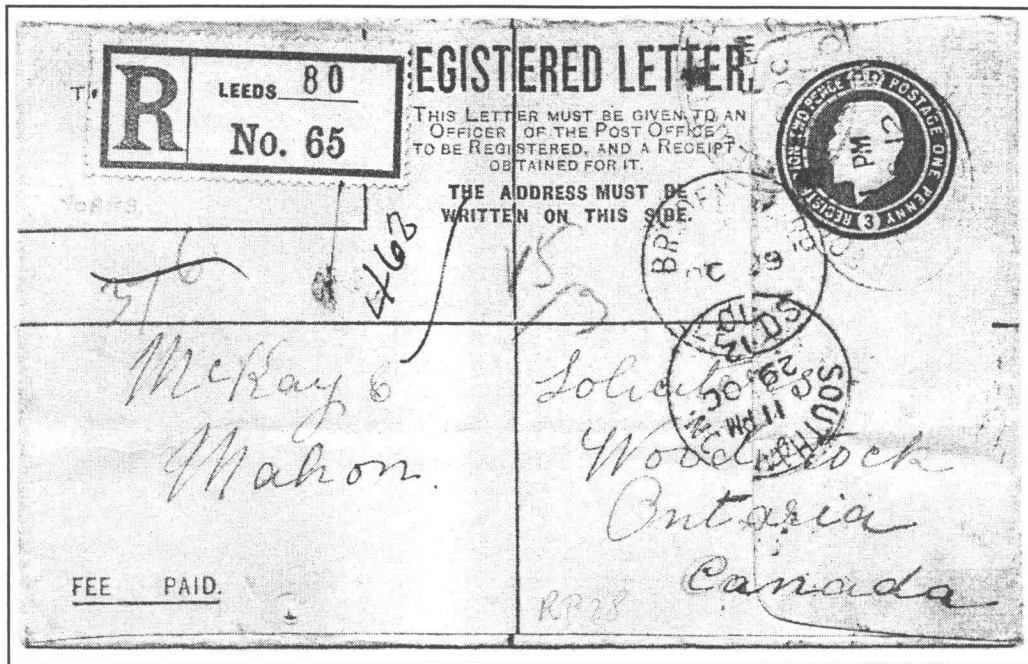 R LEEDS 80
No. 65
EGISTERED LETTER.
THIS LETTER MUST BE GIVEN TO AN
OFFICER OF THE POST OFFICE
TO BE REGISTERED, AND A RECEIPT
OBTAINED FOR IT.
THE ADDRESS MUST BE
WRITTEN ON THIS SIDE.
POSTAGE ONE PENNY
3
PM
463
15
McKay &
Mahon.
Solicitors
Woodstock
Ontaria
Canada
SOUTH
11 PM
29 OC
FEE PAID.
RP28